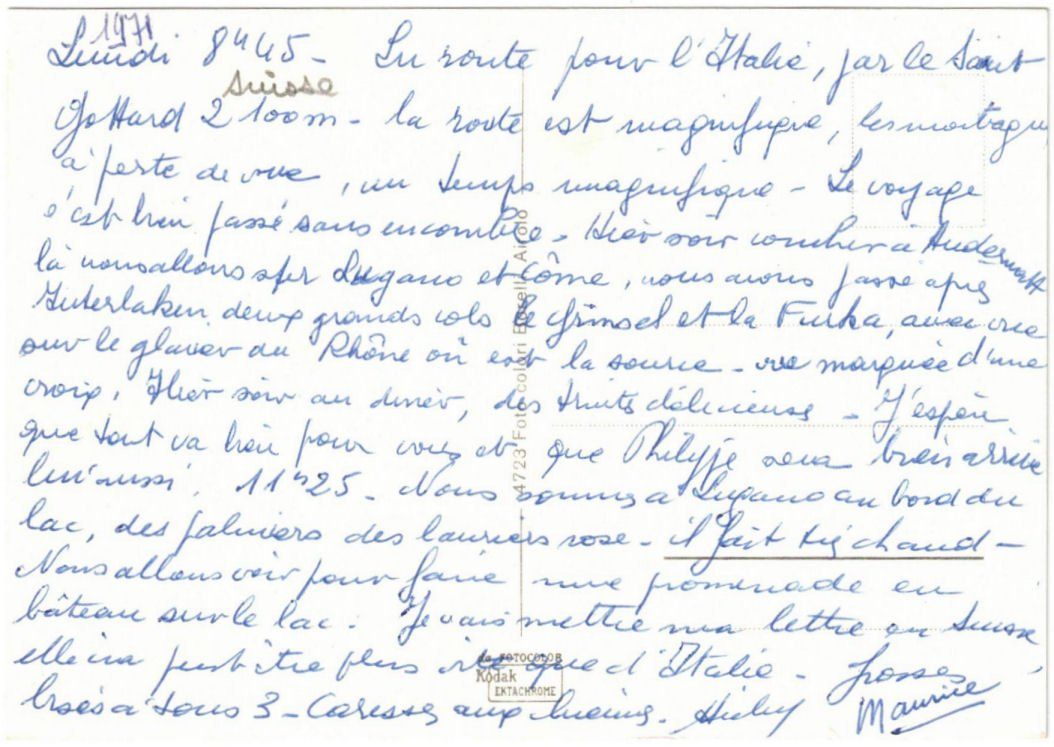 1971
Lundi 8h45 - Su route pour l'Italie, par le Saint
Suisse
Gottard 2100m - la route est magnifique, les montagnes
à perte de vue, un temps magnifique - Le voyage
s'est bien passé sans encombre - Hier soir coucher à Andermatt
là nous allons sur Lugano et Côme, nous avons passé après
Interlaken deux grands cols le Grimsel et la Furka, avec vue
sur le glacier du Rhône où est la source - vue marquée d'une
croix. Hier soir au diner, des truits délicieuses - J'espère
que tout va bien pour vous et que Philippe sera bien arrivé
lui aussi. 11h25 - Nous sommes a Lugano au bord du
lac, des palmiers des lauriers rose - il fait très chaud -
Nous allons voir pour faire une promenade en
bâteau sur le lac. Je vais mettre ma lettre en Suisse,
elle ira peut être plus vite que d'Italie - Grosses
bises à tous 3 - Caresses aux
Maurice
4723 Foto colori Airolo
da FOTOCOLOR
Kodak
EKTACHROME